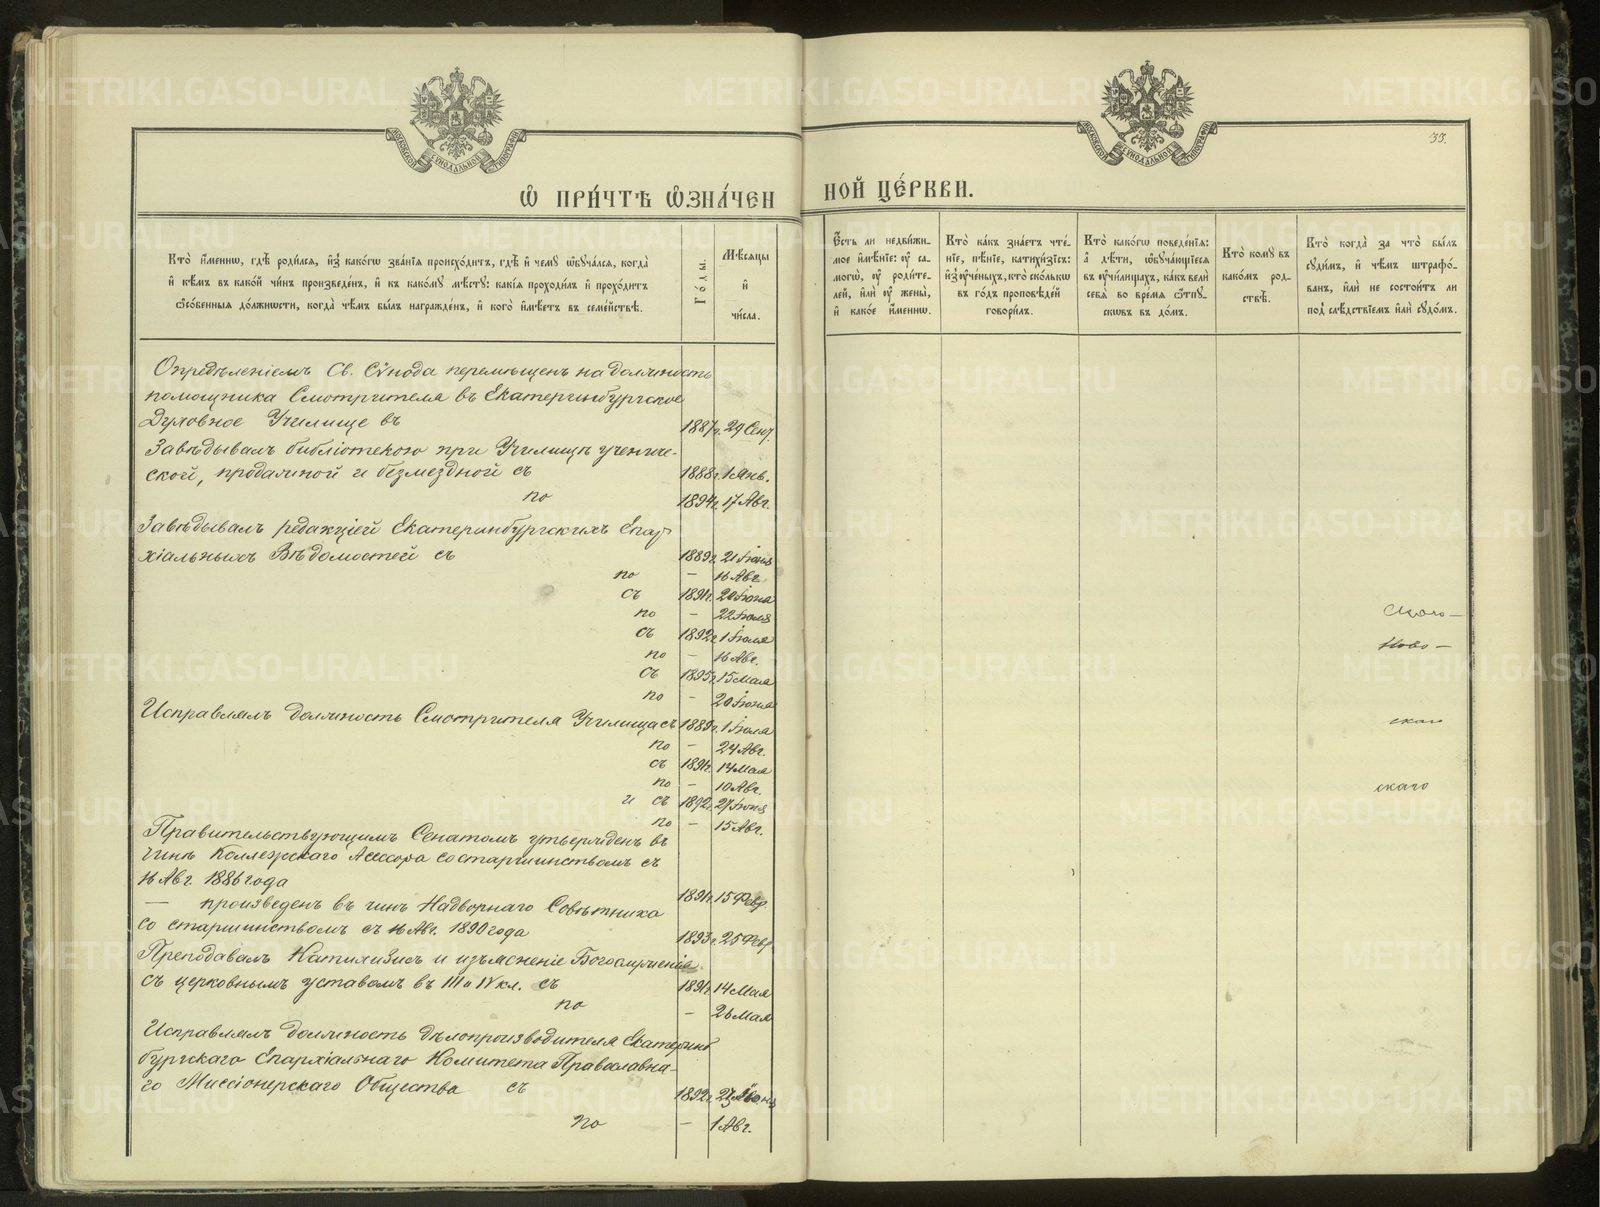 33.
Ѡ҆ ПРИ́ЧТѢ Ѡ҆ЗНА́ЧЕН
НОЙ ЦЕ́РКВИ.
Кто̀ и҆́менно, гдѣ̀ роди́лся, и҆з̾ какѡ́гѡ зва́нїя происхо́дитъ, гдѣ̀ и҆ чемꙋ̀ ѡ҆бꙋча́лся, когда̀
и҆ кѣ́мъ въ како́й чи́нъ произведе́нъ, и҆ къ како́мꙋ мѣ́стꙋ: какі̑я проходи́лъ и҆ прохо́дитъ
ѻ҆со́бенныя до́лжности, когда̀ чѣ́мъ бы́лъ награжде́нъ, и҆ кого̀ и҆мѣ́етъ въ семе́йствѣ.
Го́ды.
Мѣ́сяцы
и҆
чи́сла.
Є҆́сть ли недви́жи-
мое и҆мѣ́нїе: ᲂу҆ са-
могѡ̀, ᲂу҆ роди́те-
лей, и҆лѝ ᲂу҆ жены̀,
и҆ како́е и҆́менно.
Кто̀ ка́къ зна́етъ чте́-
нїе, пѣ́нїе, катихи́зїсъ:
и҆ з̾ ᲂу҆че́ныхъ, кто̀ ско́лькѡ
въ го́дъ проповѣ́дей
говори́лъ.
Кто̀ како́гѡ поведе́нїя:
а҆ дѣ́ти, ѡ҆бꙋча́ющїеся
въ ᲂу҆чи́лищахъ, ка́къ велѝ
себя̀ во вре́мя ѿпꙋ-
скѡ́въ въ до́мъ.
Кто̀ комꙋ̀ въ
како́мъ род-
ствѣ̀.
Кто̀ когда̀ за что̀ бы́лъ
сꙋди́мъ, и҆ чѣ́мъ штрафо́-
ванъ, и҆лѝ не состои́тъ ли
под̾ слѣ́дствїемъ и҆лѝ сꙋдо́мъ.
Опредѣленіемъ Св. Сѵнода перемѣщенъ на должность
помощника Смотрителя въ Екатеринбургское
Духовное Училище въ 1887г. 29 Сен.
Завѣдывалъ библіотекою при Училищѣ учениче-
ской, продажной и безмездной съ 1888г. 1 Янв.
по 1894г. 17 Авг.
Завѣдывалъ редакціей Екатеринбургскихъ Епар-
хіальныхъ Вѣдомостей съ 1889г. 21 Іюня
по — 16 Авг.
съ 1891г. 20 Іюня
по — 22 Іюля
съ 1892г. 1 Іюля
по — 16 Авг.
съ 1895г. 15 Мая
по — 20 Іюня
Исправлялъ должность Смотрителя Училища съ 1889г. 1 Іюля
по — 24 Авг.
съ 1891г. 14 Мая
по — 10 Авг.
и съ 1892г. 27 Іюня
по — 15 Авг.
Правительствующимъ Сенатомъ утвержденъ въ
чинѣ Коллежскаго Асессора со старшинствомъ съ
16 Авг. 1886 года 1891г. 15 Февр.
— произведенъ въ чинъ Надворнаго Совѣтника
со старшинствомъ съ 16 Авг. 1890 года 1893г. 25 Февр.
Преподавалъ Катихизисъ и изъясненіе Богослуженія
съ церковнымъ уставомъ въ III и IV кл. съ 1891г. 14 Мая
по — 26 Мая
Исправлялъ должность дѣлопроизводителя Екатерин-
бургскаго Епархіальнаго Комитета Православна-
го Миссіонерскаго Общества съ 1892г. 27 Іюня
по — 1 Авг.
Ново —
скаго
скаго